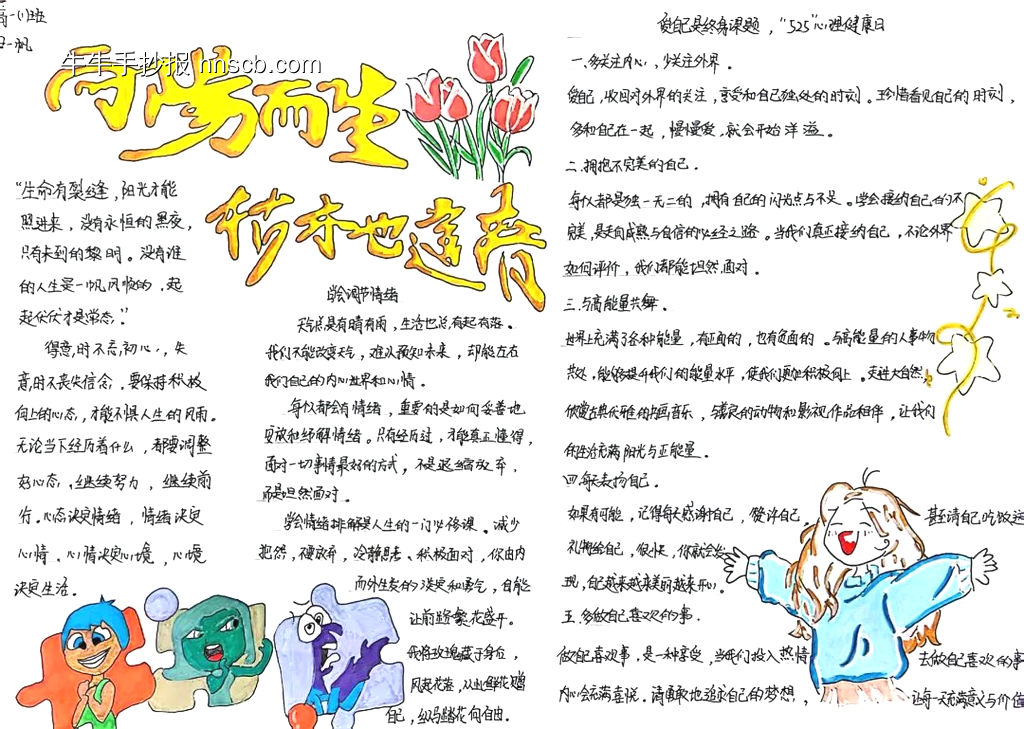 高一(1)班
一帆
牛牛手抄报 nnscb.com
向阳而生
积木也逢春
"生命有裂缝，阳光才能
照进来，没有永恒的黑夜，
只有未到的黎明。没有谁
的人生是一帆风顺的，起
起伏伏才是常态."
得意时不忘初心，失
意时不丧失信念，要保持积极
向上的心态，才能不惧人生的风雨。
无论当下经历着什么，都要调整
好心态，继续努力，继续前
行。心态决定情绪，情绪决定
心情、心情决定心境，心境
决定生活.
学会调节情绪
天气总是有晴有雨，生活也总有起有落。
我们不能改变天气，难以预知未来，却能左右
我们自己的内心世界和心情.
每个人都会有情绪，重要的是如何妥善地
安放和纾解情绪。只有经历过，才能真正懂得，
面对一切事情最好的方式，不是退缩放弃，
而是坦然面对.
学会情绪排解是人生的一门必修课。减少
抱怨，硬放弃，冷静思考、积极面对，你由内
而外生发的淡定和勇气，自能
让前路繁花盛开。
我将玫瑰藏于身后，
风起花落，从此鲜花赠
自己，纵马踏花向自由.
爱自己是终身课题，"525"心理健康日
一.多关注内心，少关注外界.
爱自己，收回对外界的关注，享受和自己独处的时刻。珍惜看见自己的时刻，
多和自己在一起，慢慢爱，就会开始洋溢.
二.拥抱不完美的自己.
每个人都是独一无二的，拥有自己的闪光点与不足。学会接纳自己的不
完美，是走向成熟与自信的必经之路。当我们真正接纳自己，不论外界
如何评价，我们都能坦然面对.
三.与高能量共舞.
世界上充满了各种能量，有正面的，也有负面的。与高能量的人事物
共处，能够提升我们的能量水平，使我们更加积极向上。走进大自然，
欣赏古典优雅的书画音乐，与善良的动物和影视作品相伴，让我们
的生活充满阳光与正能量.
四.每天表扬自己.
如果有可能，记得每天感谢自己，赞许自己. 甚至请自己吃饭送
礼物给自己，很快，你就会发
现，自己越来越美丽越来开心.
五.多做自己喜欢的事.
做自己喜欢事，是一种享受，当我们投入热情 去做自己喜欢的事
内心会充满喜悦，请勇敢地追求自己的梦想， 让每一天充满意义与价值